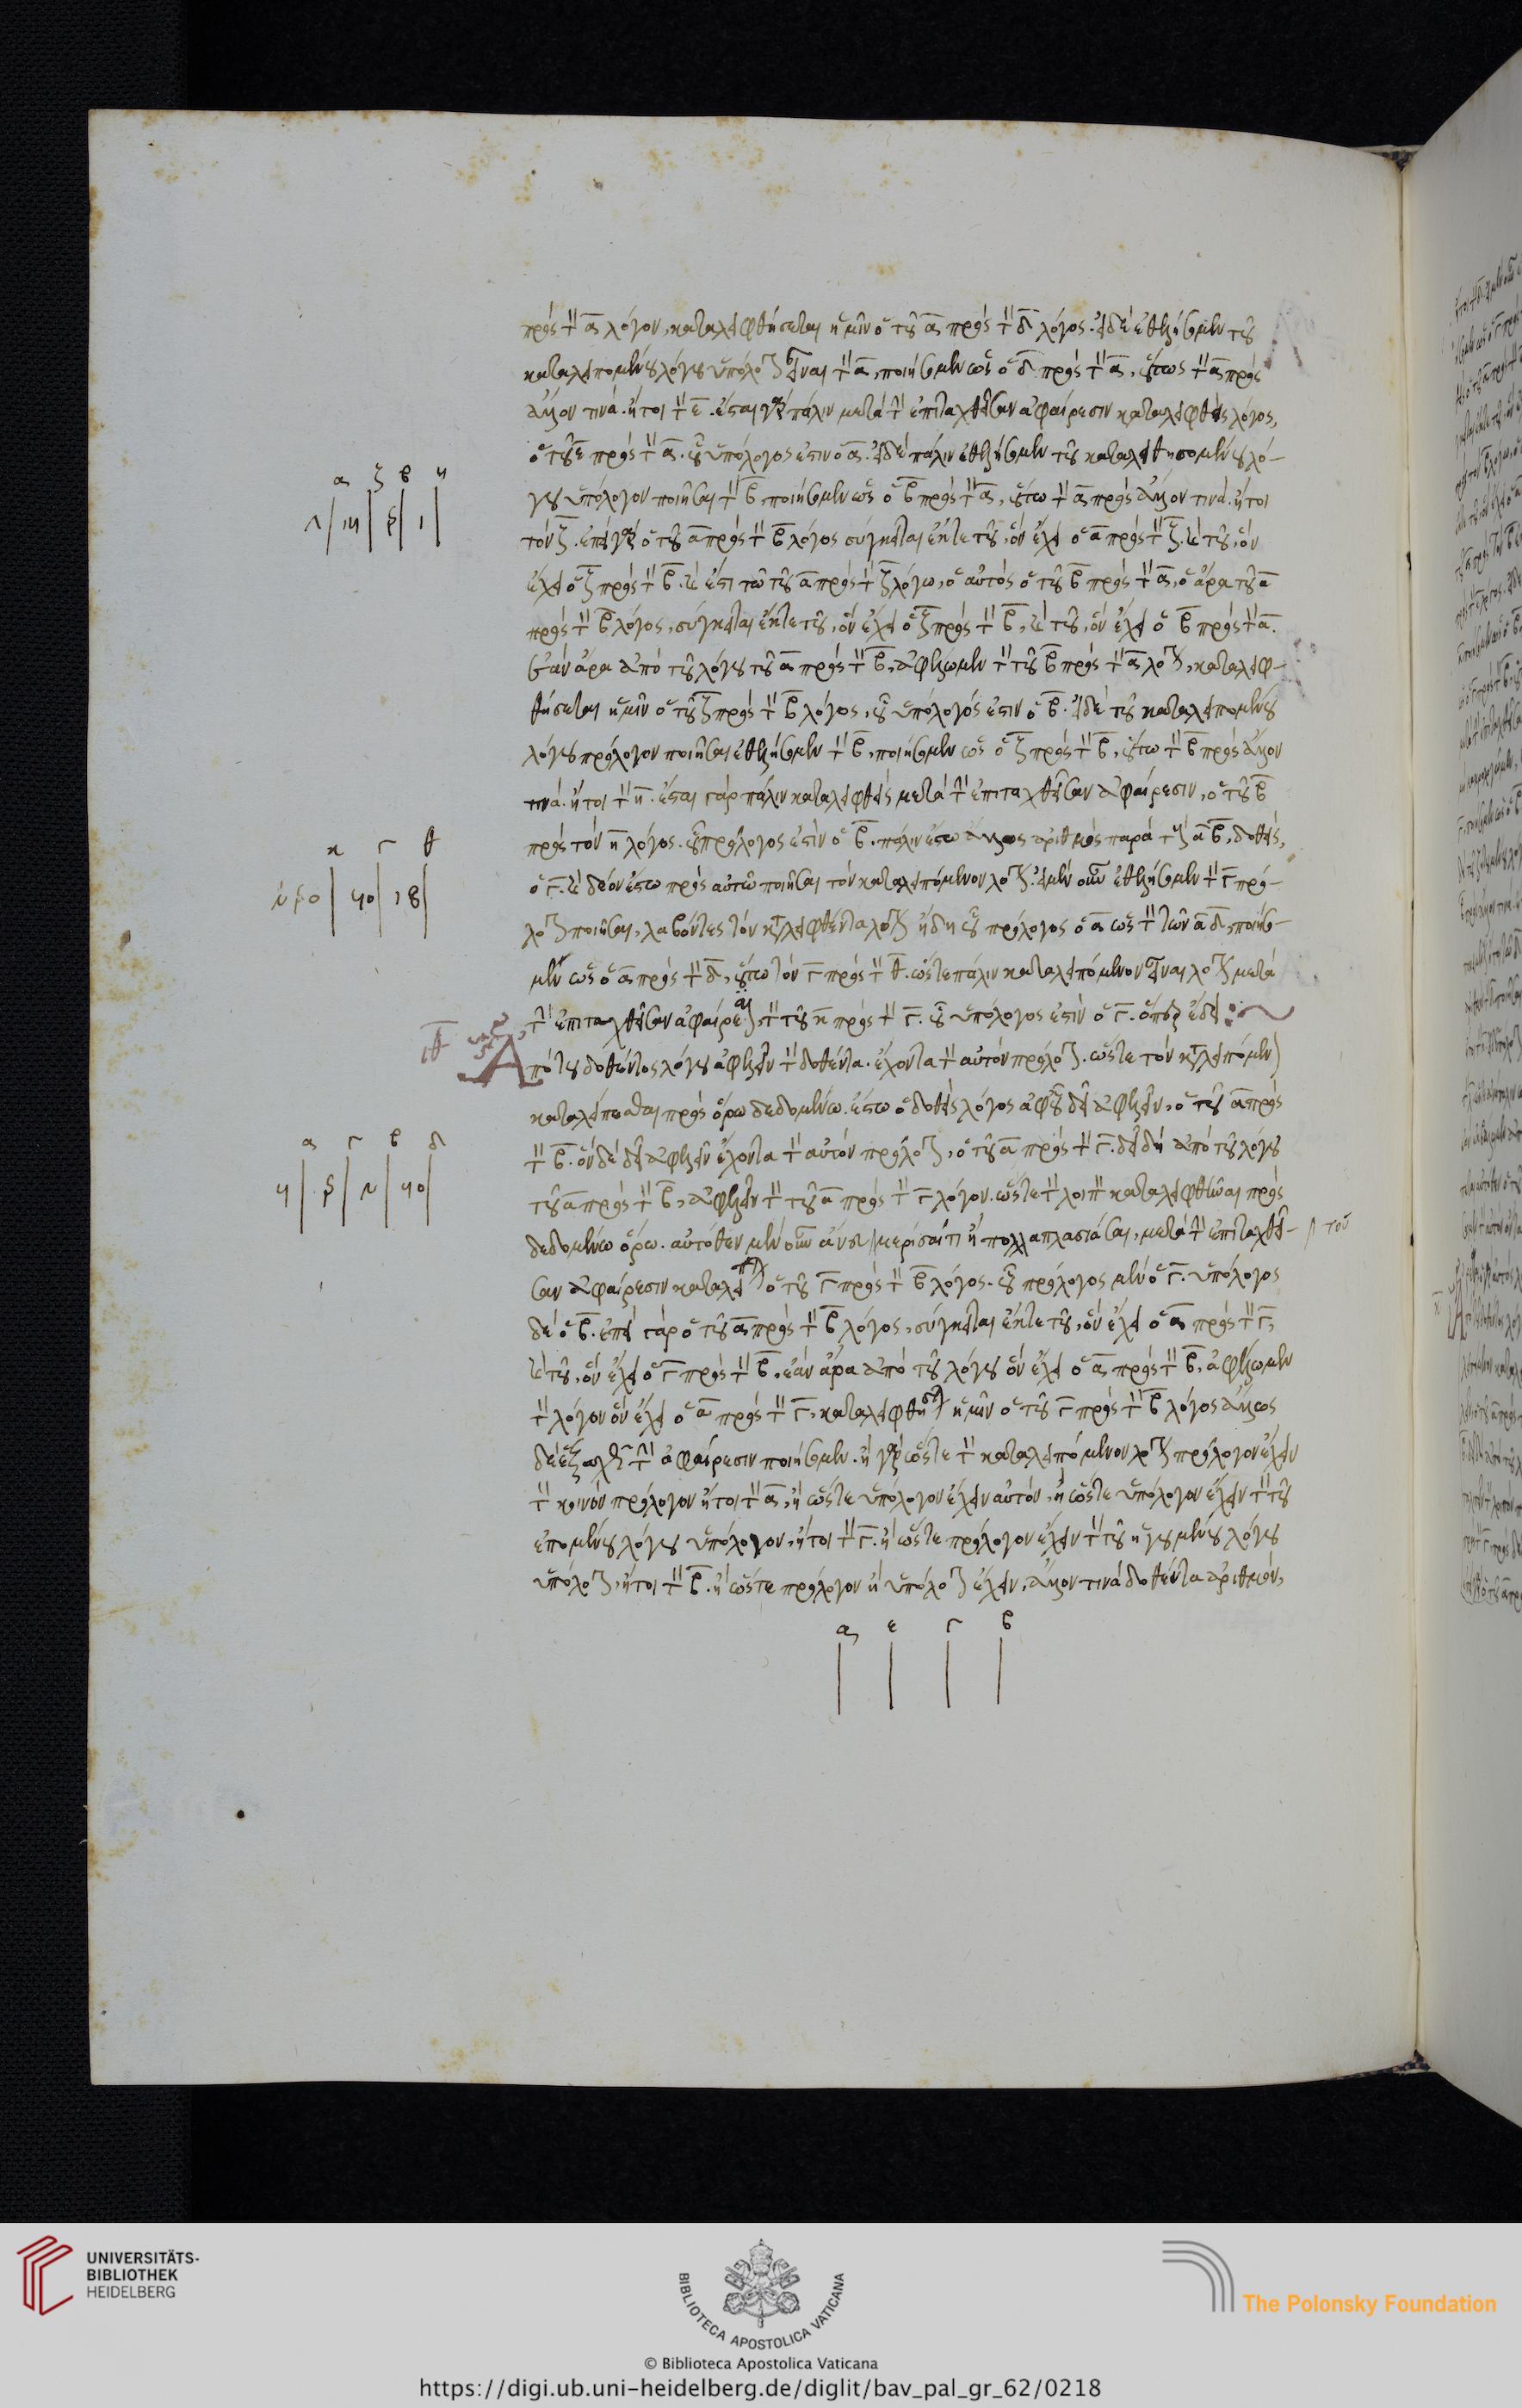 πρὸς τὸν α λόγον, καταλειφθήσεται ἡμῖν ὁ τοῦ α πρὸς τὸν δ λόγος. εἰ δὲ ἐθελήσομεν τοῦ
καταλειπομένου λόγου ὑπόλογον εἶναι τὸν α, ποιήσομεν ὡς ὁ δ πρὸς τὸν α, οὕτως τὸν α πρὸς
ἄλλον τινά. ἤτοι τὸν ε. ἔσται γὰρ πάλιν μετὰ τὴν ἐπιταχθεῖσαν ἀφαίρεσιν καταλειφθεὶς λόγος,
ὁ τοῦ ε πρὸς τὸν α. οὗ ὑπόλογος ἐστιν ὁ α. εἰ δὲ πάλιν ἐθελήσομεν τοῦ καταλειφθησομένου λό-
γου ὑπόλογον ποιῆσαι τὸν β, ποιήσομεν ὡς ὁ β πρὸς τὸν α, οὕτω τὸν α πρὸς ἄλλον τινά. ἤτοι
τὸν ζ. ἐπεὶ γὰρ ὁ τοῦ α πρὸς τὸν β λόγος σύγκειται ἔκ τε τοῦ, ὃν ἔχει ὁ α πρὸς τὸν ζ. καὶ τοῦ, ὃν
ἔχει ὁ ζ πρὸς τὸν β. καὶ ἔστι τῷ τοῦ α πρὸς τὸν ζ λόγῳ, ὁ αὐτὸς ὁ τοῦ β πρὸς τὸν α, ὁ ἄρα τοῦ α
πρὸς τὸν β λόγος, σύγκειται ἔκ τε τοῦ, ὃν ἔχει ὁ ζ πρὸς τὸν β, καὶ τοῦ, ὃν ἔχει ὁ β πρὸς τὸν α.
ἐὰν ἄρα ἀπὸ τοῦ λόγου τοῦ α πρὸς τὸν β, ἀφέλωμεν τὸν τοῦ β πρὸς τὸν α λόγον, καταλειφ-
θήσεται ἡμῖν ὁ τοῦ ζ πρὸς τὸν β λόγος, οὗ ὑπόλογός ἐστιν ὁ β. εἰ δὲ τοῦ καταλειπομένου
λόγου πρόλογον ποιῆσαι ἐθελήσομεν τὸν β, ποιήσομεν ὡς ὁ ζ πρὸς τὸν β, οὕτω τὸν β πρὸς ἄλλον
τινά. ἤτοι τὸν η. ἔσται γὰρ πάλιν καταλειφθεὶς μετὰ τὴν ἐπιταχθεῖσαν ἀφαίρεσιν, ὁ τοῦ β
πρὸς τὸν η λόγος. οὗ πρόλογος ἐστὶν ὁ β. πάλιν ἔστω ἄλλος ἀριθμὸς παρὰ τοὺς α β, δοθεὶς,
ὁ γ. καὶ δέον ἔστω πρὸς αὐτῷ ποιῆσαι τὸν καταλειπόμενον λόγον. εἰ μὲν οὖν ἐθελήσομεν τὸν γ πρό-
λογον ποιῆσαι, λαβόντες τὸν καταλειφθέντα λόγον ἤδη οὗ πρόλογος ὁ α ὡς τὸν τῶν α δ, ποιήσο-
μεν ὡς ὁ α πρὸς τὸν δ, οὕτω τὸν γ πρὸς τὸν θ. ὥστε πάλιν καταλειπόμενον εἶναι λόγον μετὰ
τὴν ἐπιταχθεῖσαν ἀφαίρεσιν, τὸν τοῦ κ πρὸς τὸν γ. οὗ ὑπόλογος ἐστὶν ὁ γ. ὅπερ ἔδει :~
ιθ Ἀπὸ τοῦ δοθέντος λόγου ἀφελεῖν τὸν δοθέντα. ἔχοντα τὸν αὐτὸν πρόλογον. ὥστε τὸν καταλειπόμενον
καταλείπεσθαι πρὸς ὅρῳ δεδομένῳ. ἔστω ὁ δοθεὶς λόγος ἀφ' οὗ δεῖ ἀφελεῖν, ὁ τοῦ α πρὸς
τὸν β. ὃν δὲ δεῖ ἀφελεῖν ἔχοντα τὸν αὐτὸν πρόλογον, ὁ τοῦ α πρὸς τὸν γ. δεῖ δὴ ἀπὸ τοῦ λόγου
τοῦ α πρὸς τὸν β, ἀφελεῖν τὸν τοῦ α πρὸς τὸν γ λόγον. ὥστε τὸν λοιπὸν καταλειφθῆναι πρὸς
δεδομένῳ ὅρῳ. αὐτόθεν μὲν οὖν ἄνευ μερίσαι τι ἢ πολλαπλασιάσαι, μετὰ τὴν ἐπιταχθεῖ- / τοῦ
σαν ἀφαίρεσιν καταλείπεται ὁ τοῦ γ πρὸς τὸν β λόγος. οὗ πρόλογος μὲν ὁ γ. ὑπόλογος
δὲ ὁ β. ἐπεὶ γὰρ ὁ τοῦ α πρὸς τὸν β λόγος, σύγκειται ἔκ τε τοῦ, ὃν ἔχει ὁ α πρὸς τὸν γ,
καὶ τοῦ, ὃν ἔχει ὁ γ πρὸς τὸν β, ἐὰν ἄρα ἀπὸ τοῦ λόγου ὃν ἔχει ὁ α πρὸς τὸν β, ἀφέλωμεν
τὸν λόγον ὃν ἔχει ὁ α πρὸς τὸν γ, καταλειφθήσεται ἡμῖν ὁ τοῦ γ πρὸς τὸν β λόγος ἄλλως
δὲ τὴν ἀφαίρεσιν ποιήσομεν. ἢ γὰρ ὥστε τὸν καταλειπόμενον λόγον πρόλογον ἔχειν
τὸν κοινὸν πρόλογον ἤτοι τὸν α, ἢ ὥστε ὑπόλογον ἔχειν αὐτόν, ἢ ὥστε ὑπόλογον ἔχειν τὸν τοῦ
ἑπομένου λόγου ὑπόλογον, ἤτοι τὸν γ. ἢ ὥστε πρόλογον ἔχειν τὸν τοῦ ἡγουμένου λόγου
ὑπόλογον, ἤτοι τὸν β. ἢ ὥστε πρόλογον ἢ ὑπόλογον ἔχειν, ἄλλον τινὰ δοθέντα ἀριθμόν,
α ε γ β
α ζ β η
κ γ θ
α γ β δ
UNIVERSITÄTS-
BIBLIOTHEK
HEIDELBERG
BIBLIOTECA APOSTOLICA VATICANA
The Polonsky Foundation
© Biblioteca Apostolica Vaticana
https://digi.ub.uni-heidelberg.de/diglit/bav_pal_gr_62/0218